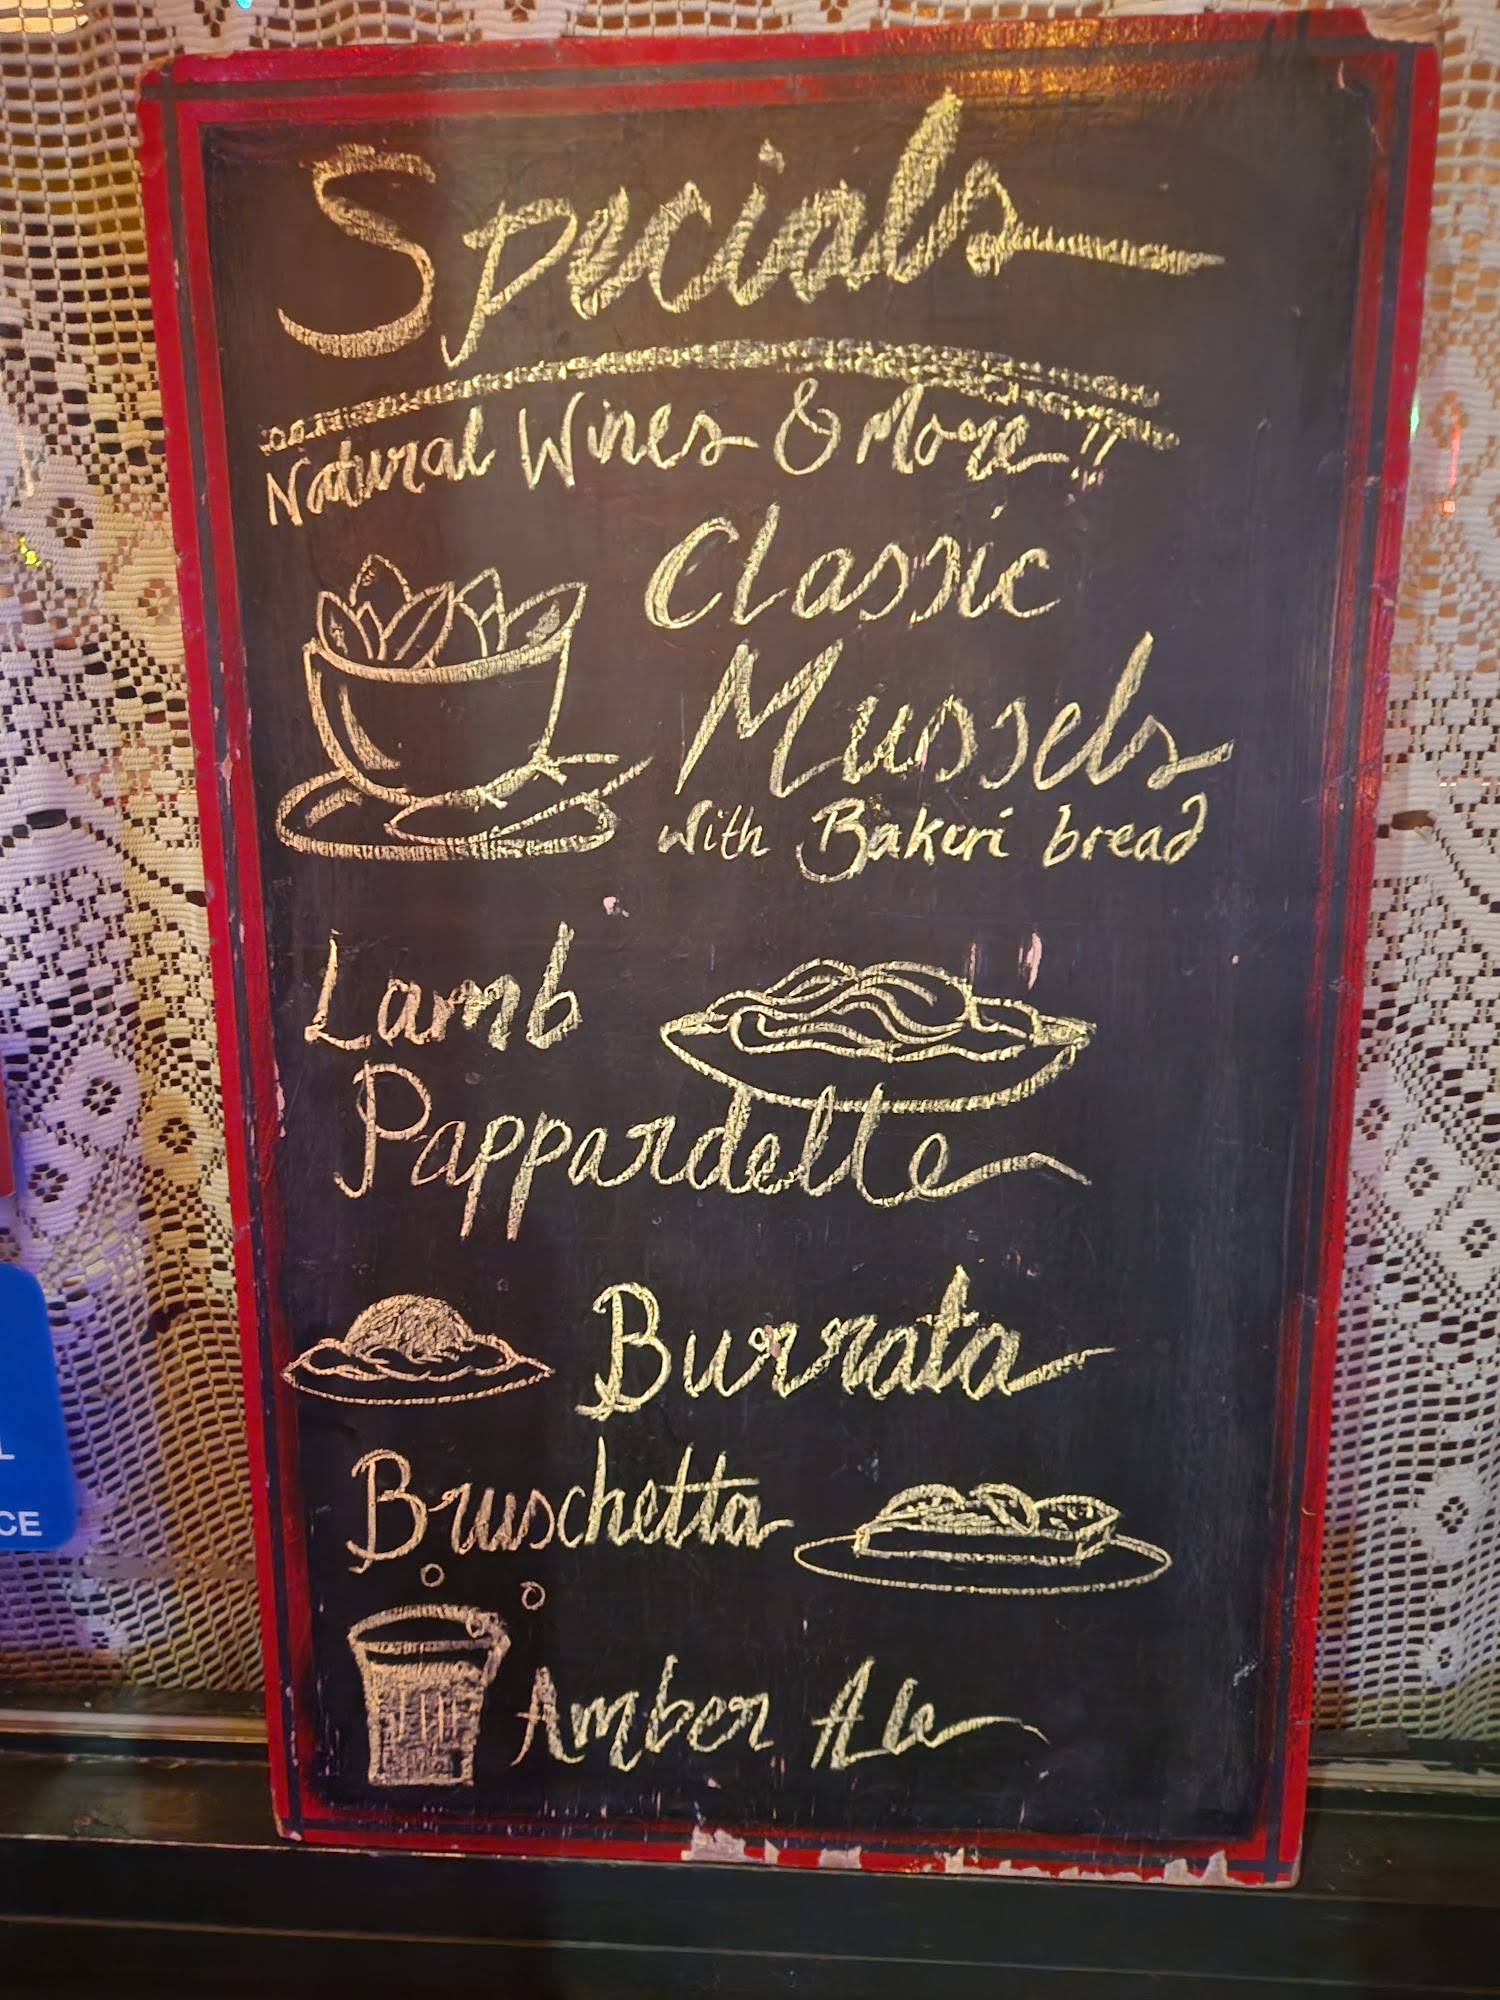 Specials
Natural Wines & More!!
Classic
Mussels
with Bakeri bread
Lamb
Pappardelle
Burrata
Bruschetta
Amber Ale
L
CE